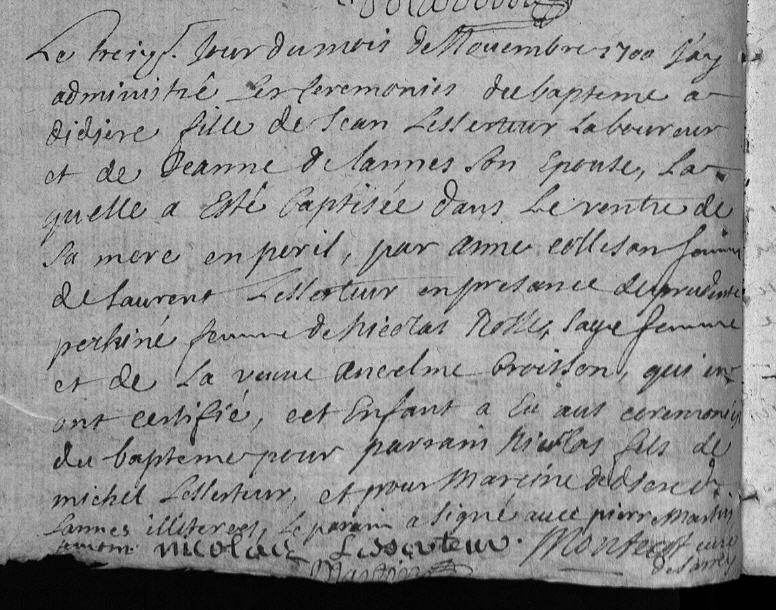 Le treiz. Jour du mois de Novembre 1700 J'ay
administré Les Ceremonies du bapteme a
didiere fille de Jean Lesserteur Laboureur
et de Jeanne de Lannes Son Epouse, La
quelle a Esté baptisée dans Le ventre de
Sa mere en peril, par anne colleson femme
de Laurent Lesserteur en presance de prudente
femme de Nicolas Rolle, Sage femme
et de La veuve Anselme Croisson, qui m'
ont certifié, cet Enfant a Eu aux ceremonies
du bapteme pour parrain Nicolas fils de
michel Lesserteur, et pour Mareine didiere de
Lannes illiteree, Le parain a Signé avec pierre Martin
nicolas Lesserteur. curé
Martin